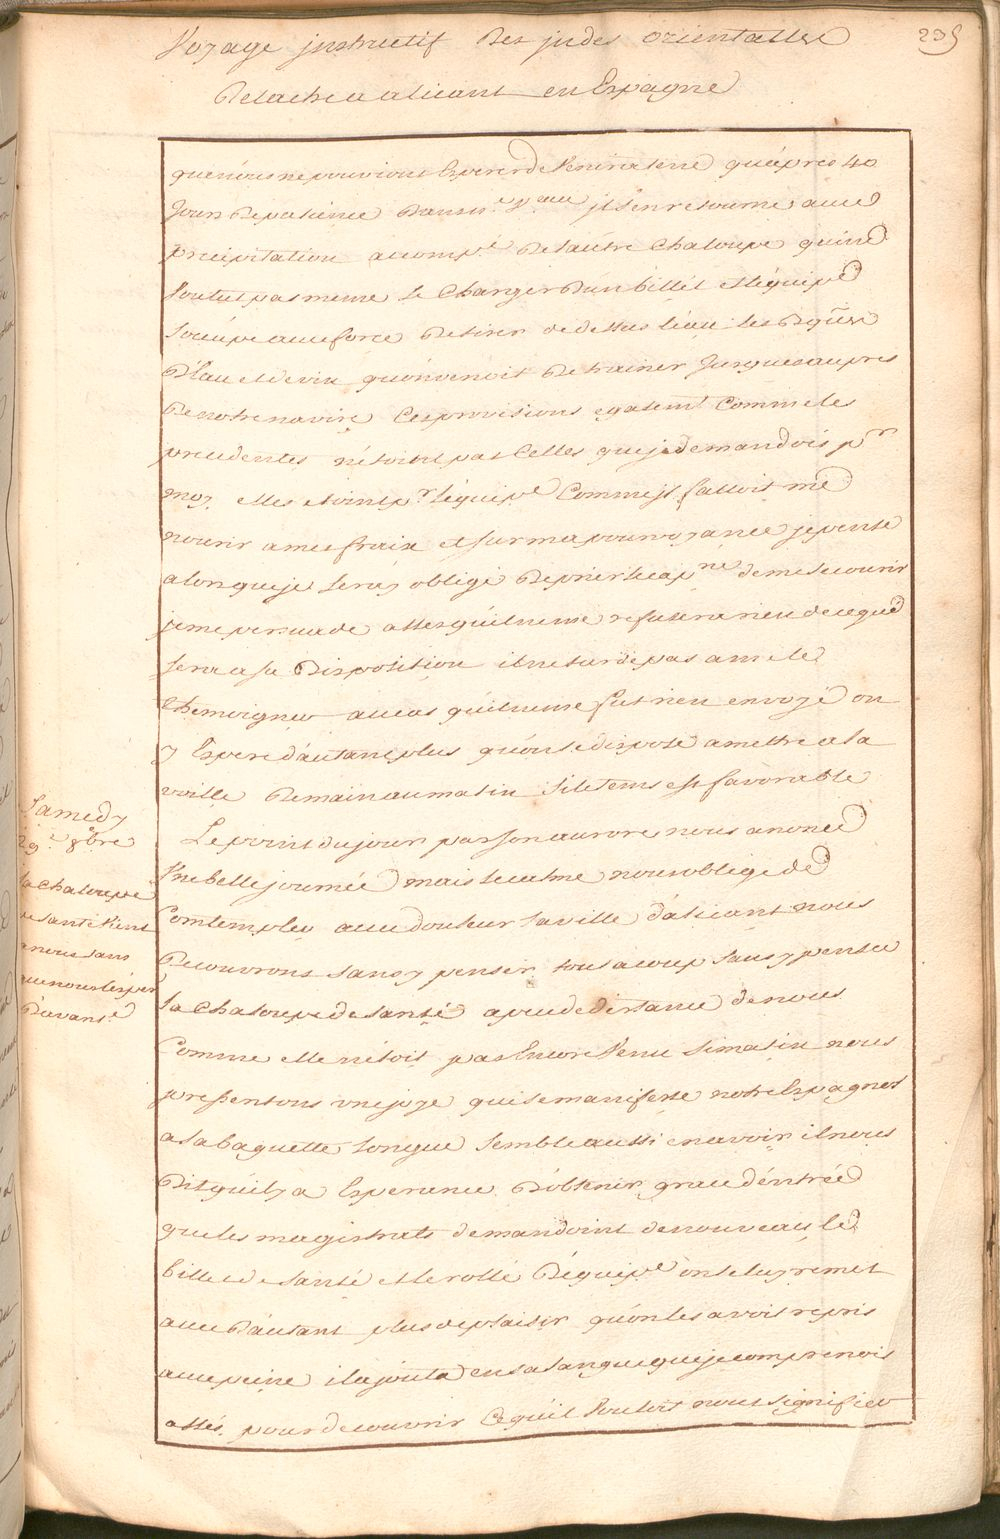 Voyage jnstructif des jndes orientalles
235
Relache a alicant en Espagne
que nous ne pouvions Esperer de Venir a terre qu'apres 40
Jours de patience dans n.e V.au jl s'en retourne avec
precipitation accomp.é de lautre Chaloupe qui ne
Voulut pas meme se Charger d'un billet et l'équipe
s'ocupe avec force de tirer de dessus l'eau les
D'Eau et de vin qu'on venoit de trainer Jusques aupres
de notre navire Ces provisions egalem.t Comme les
precedentes n'etoint pas Celles que je demandois p.r
moy elles etoint p.r l'équipe Comme jl falloit me
nourir a mes fraix et sur ma pourvoyance je pense
alors que je seray obligé de prier le cap.ne de me secourir
je me persuade assez qu'il ne me refusera rien de ce que
sera a sa Disposition il ne tarde pas a me le
themoigner au cas qu'il ne me fut rien envoyé on
y Espere d'autant plus qu'on se dispose a mettre a la
voille demain au matin si le tems est favorable
Samedy
29.e 8bre
la chaloupe
de santé Vient
a nous sans
que nous l'esper
D'avant
Le point du jour par son aurore nous anonce
Une belle journée mais le calme nous oblige de
Contempler avec douleur la ville d'alicant nous
decouvrons sans y penser tout a coup sans y penser
la Chaloupe de santé a peu de distance de nous
Comme elle n'etoit pas Encore Venu si matin nous
pressentons une joye qui se manifeste notre Espagnol
a la baguette longue semble aussi en avoir il nous
Dit qu'il y a Esperence d'obtenir grace d'éntrée
que les magistrats demandoint de nouveau le
billet de santé et le rolle D'équipe on le luy remet
avec d'autant plus de plaisir qu'on les avoit repris
avec peine il ajouta en sa langue que je comprenois
assés pour decouvrir Ce qu'il Vouloit nous signifier